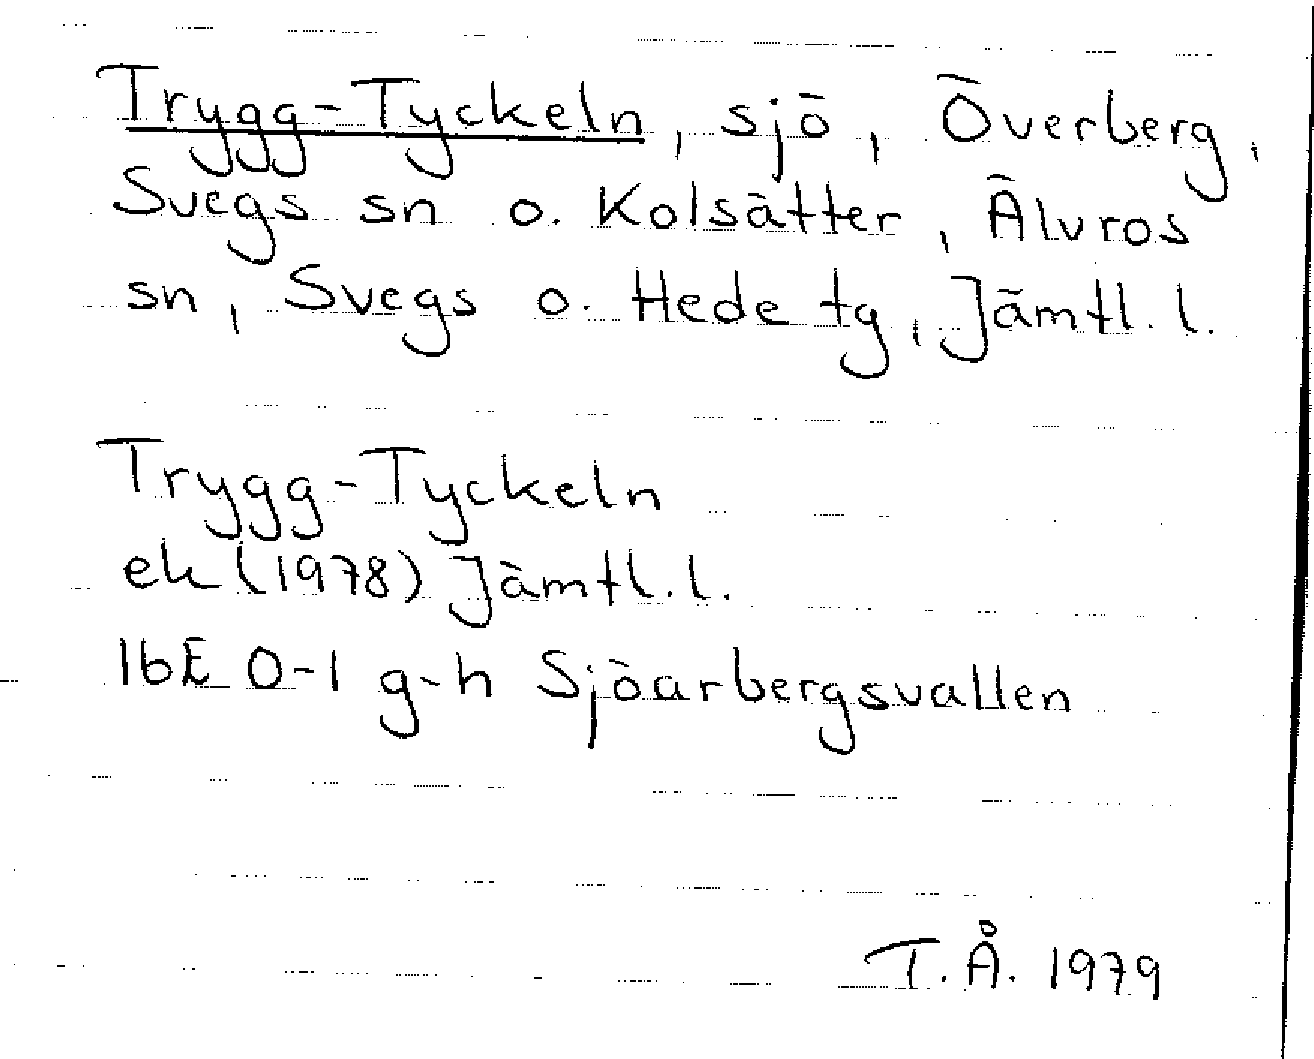 Trygg-Tyckeln, sjö, Överberg,
Svegs sn o. Kolsätter, Älvros
sn, Svegs o. Hede tg, Jämtl. l.
Trygg-Tyckeln
ek (1978) Jämtl. l.
16E 0-1 g-h Sjöarbergsvallen
T.Å. 1979